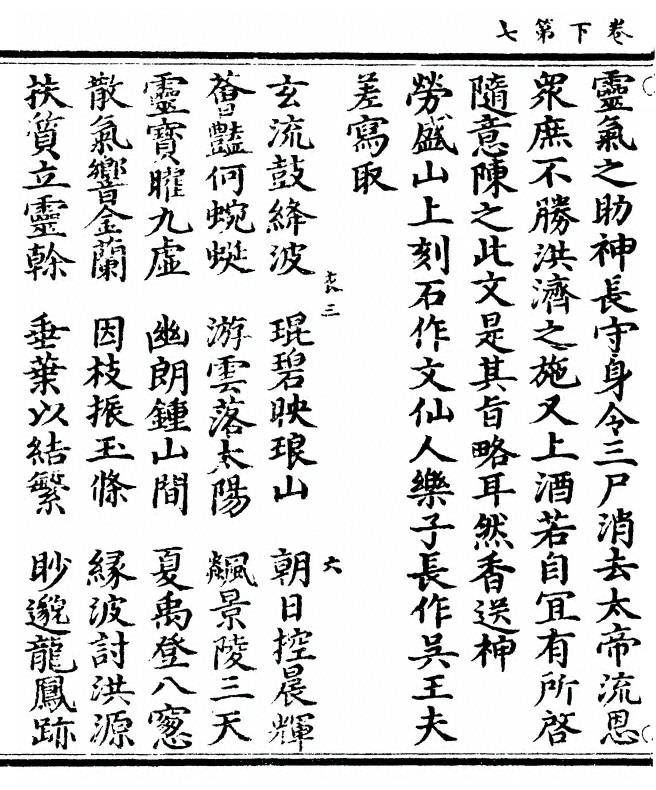 卷下第七
靈氣之助神長守身令三尸消去太帝流恩
衆庶不勝洪濟之施又上酒若自宜有所啓
隨意陳之此文是其旨略耳然香送神
勞盛山上刻石作文仙人樂子長作吳王夫
差寫取
三 六
玄流鼓絳波 琨碧映琅山 朝日控晨輝
薈豔何蜿蜒 游雲落太陽 飇景陵三天
靈寶曜九虛 幽朗鍾山間 夏禹登八窓
散氣響金蘭 因枝振玉條 緣波討洪源
扶質立靈幹 垂葉以結繁 眇邈龍鳳跡